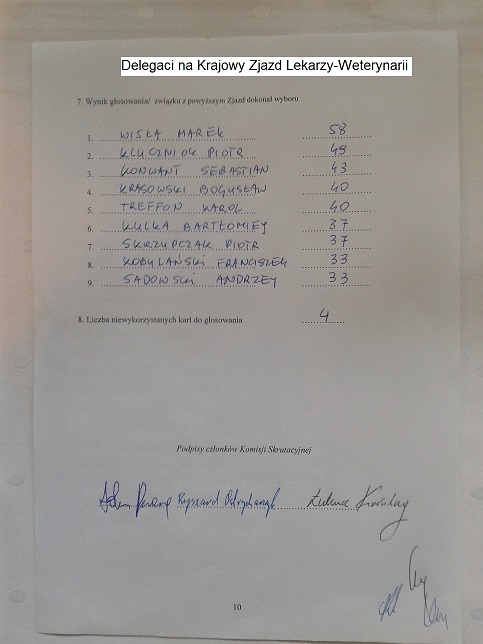 Delegaci na Krajowy Zjazd Lekarzy-Weterynarii
7. Wynik głosowania/ związku z powyższym Zjazd dokonał wyboru
1. WISŁA MAREK 58
2. KLUCZNIOK PIOTR 49
3. KONWANT SEBASTIAN 43
4. KRASOWSKI BOGUSŁAW 40
5. TREFFON KAROL 40
6. KULKA BARTŁOMIEJ 37
7. SKRZYPCZAK PIOTR 37
8. KOBYLAŃSKI FRANCISZEK 33
9. SADOWSKI ANDRZEJ 33
8. Liczba niewykorzystanych kart do głosowania 4
Podpisy członków Komisji Skrutacyjnej
Ryszard
10